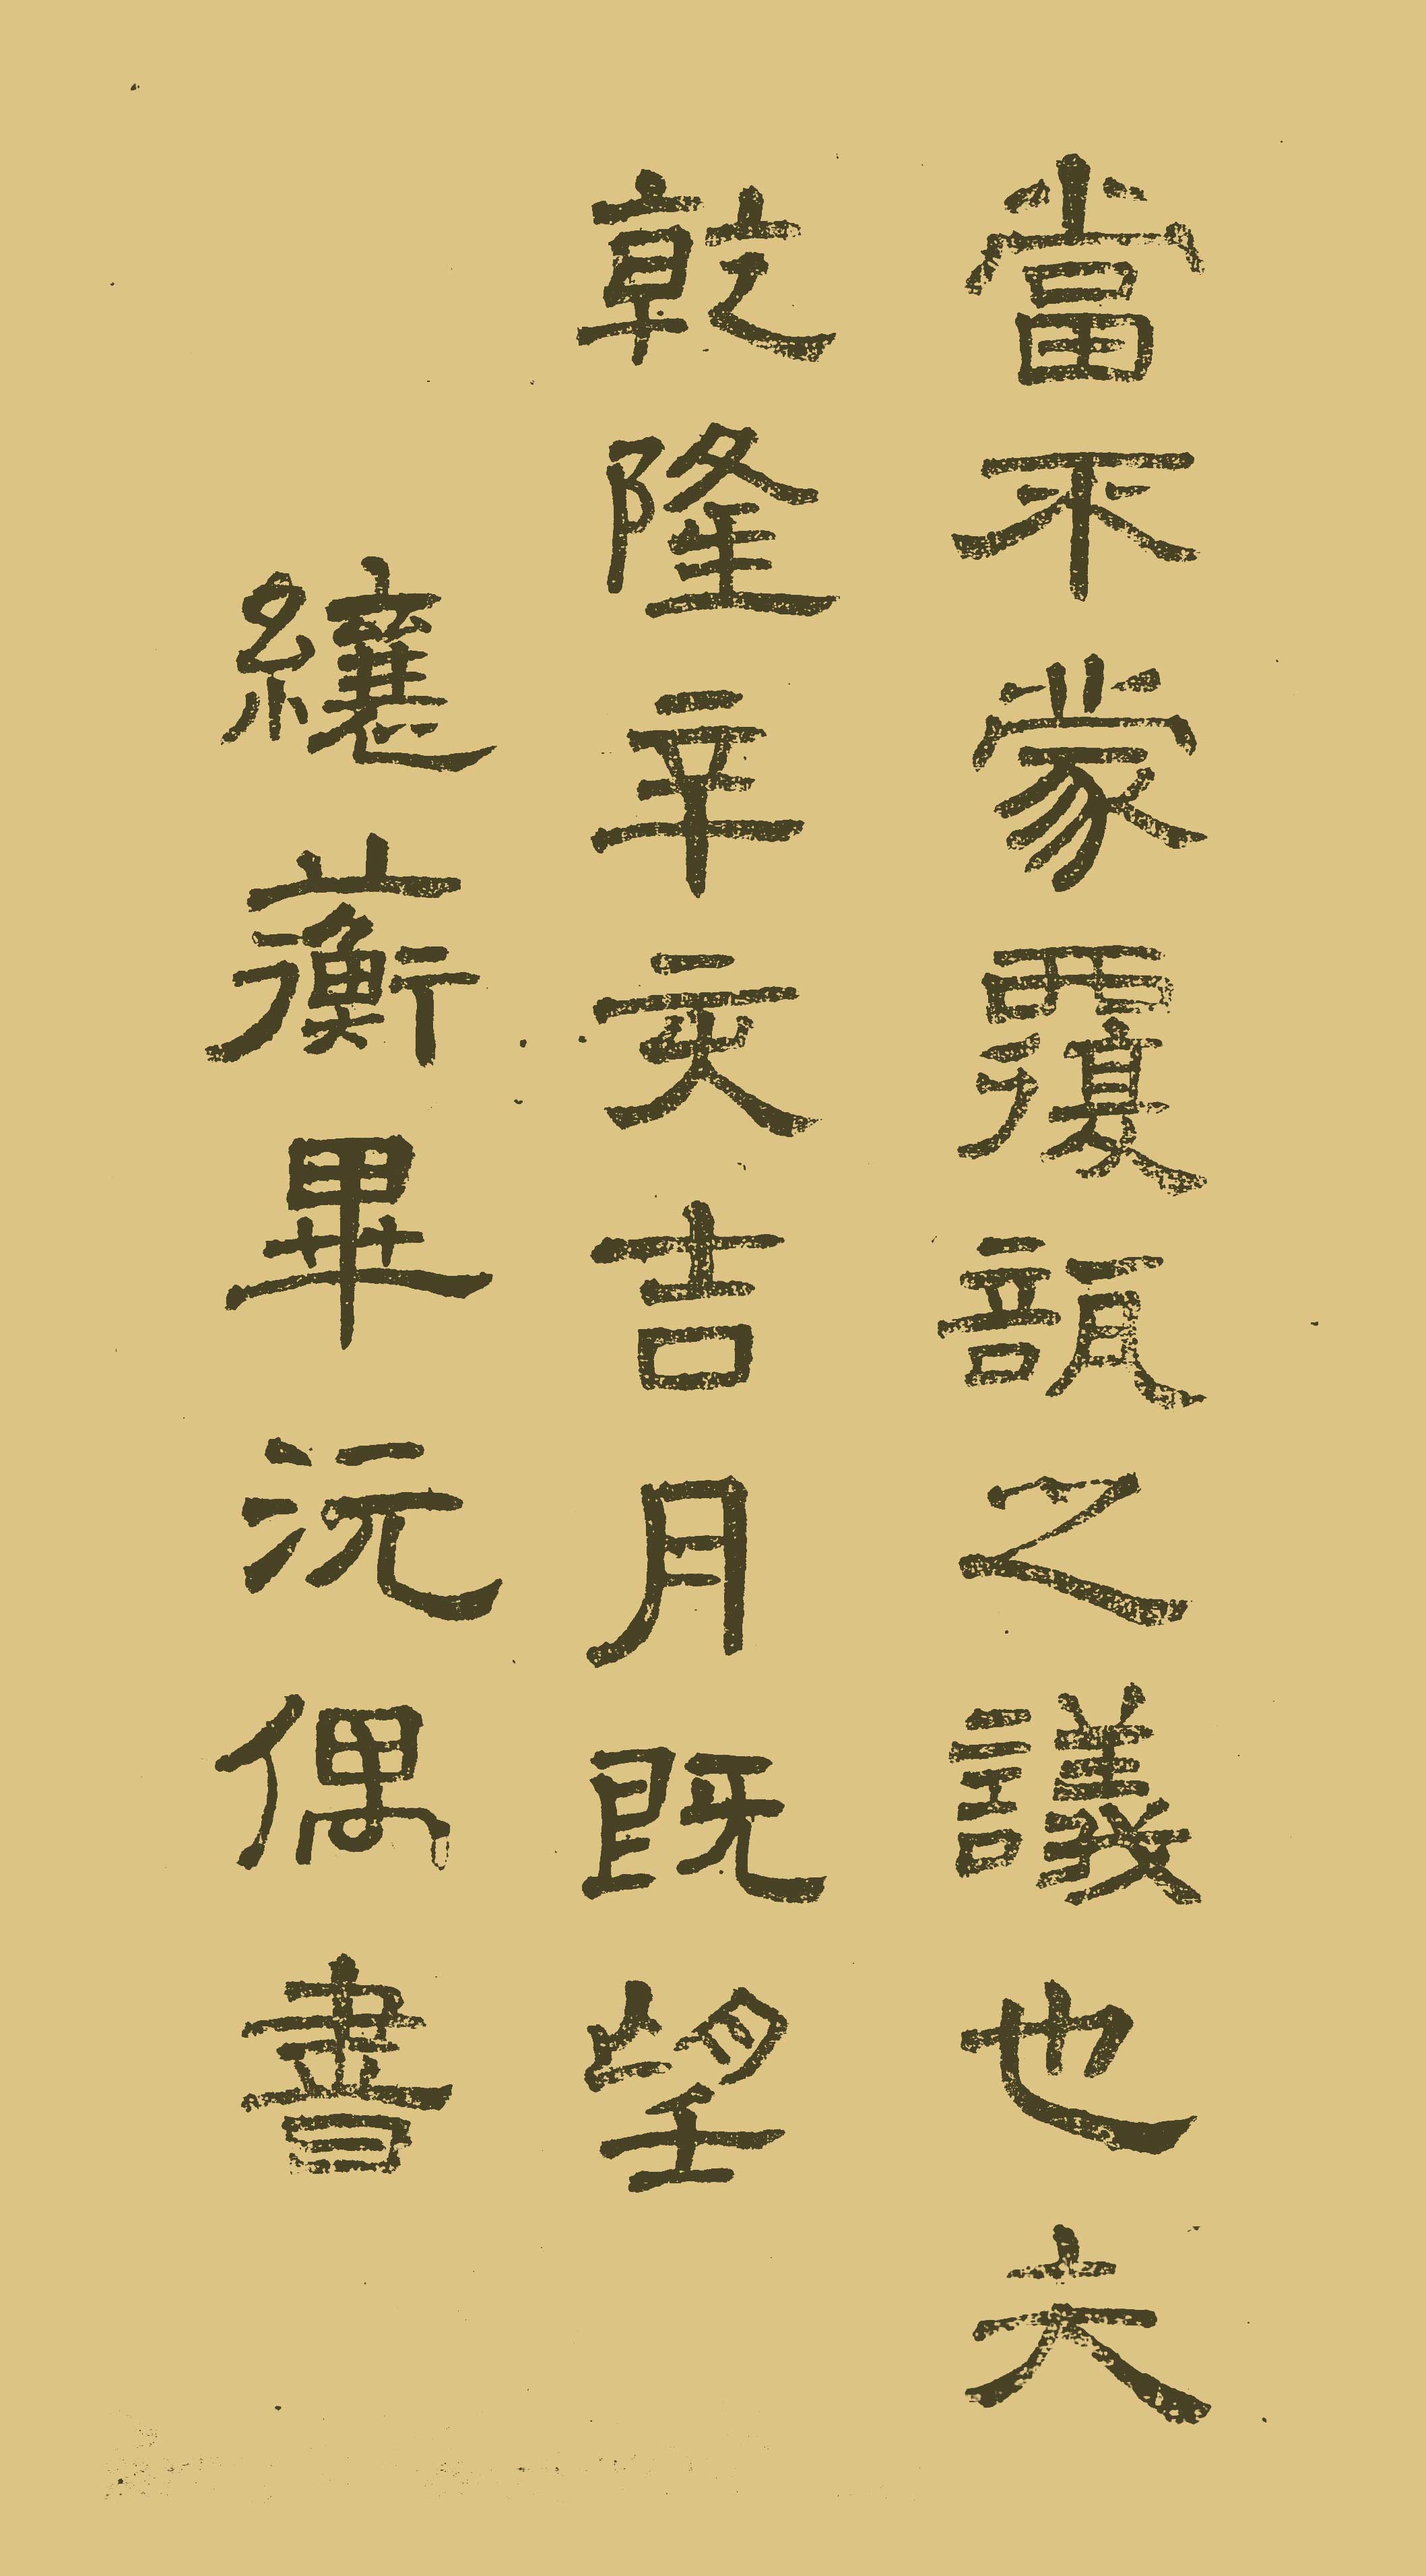 當不蒙覆瓿之議也夫
乾隆辛亥吉月既望
纕蘅畢沅偶書